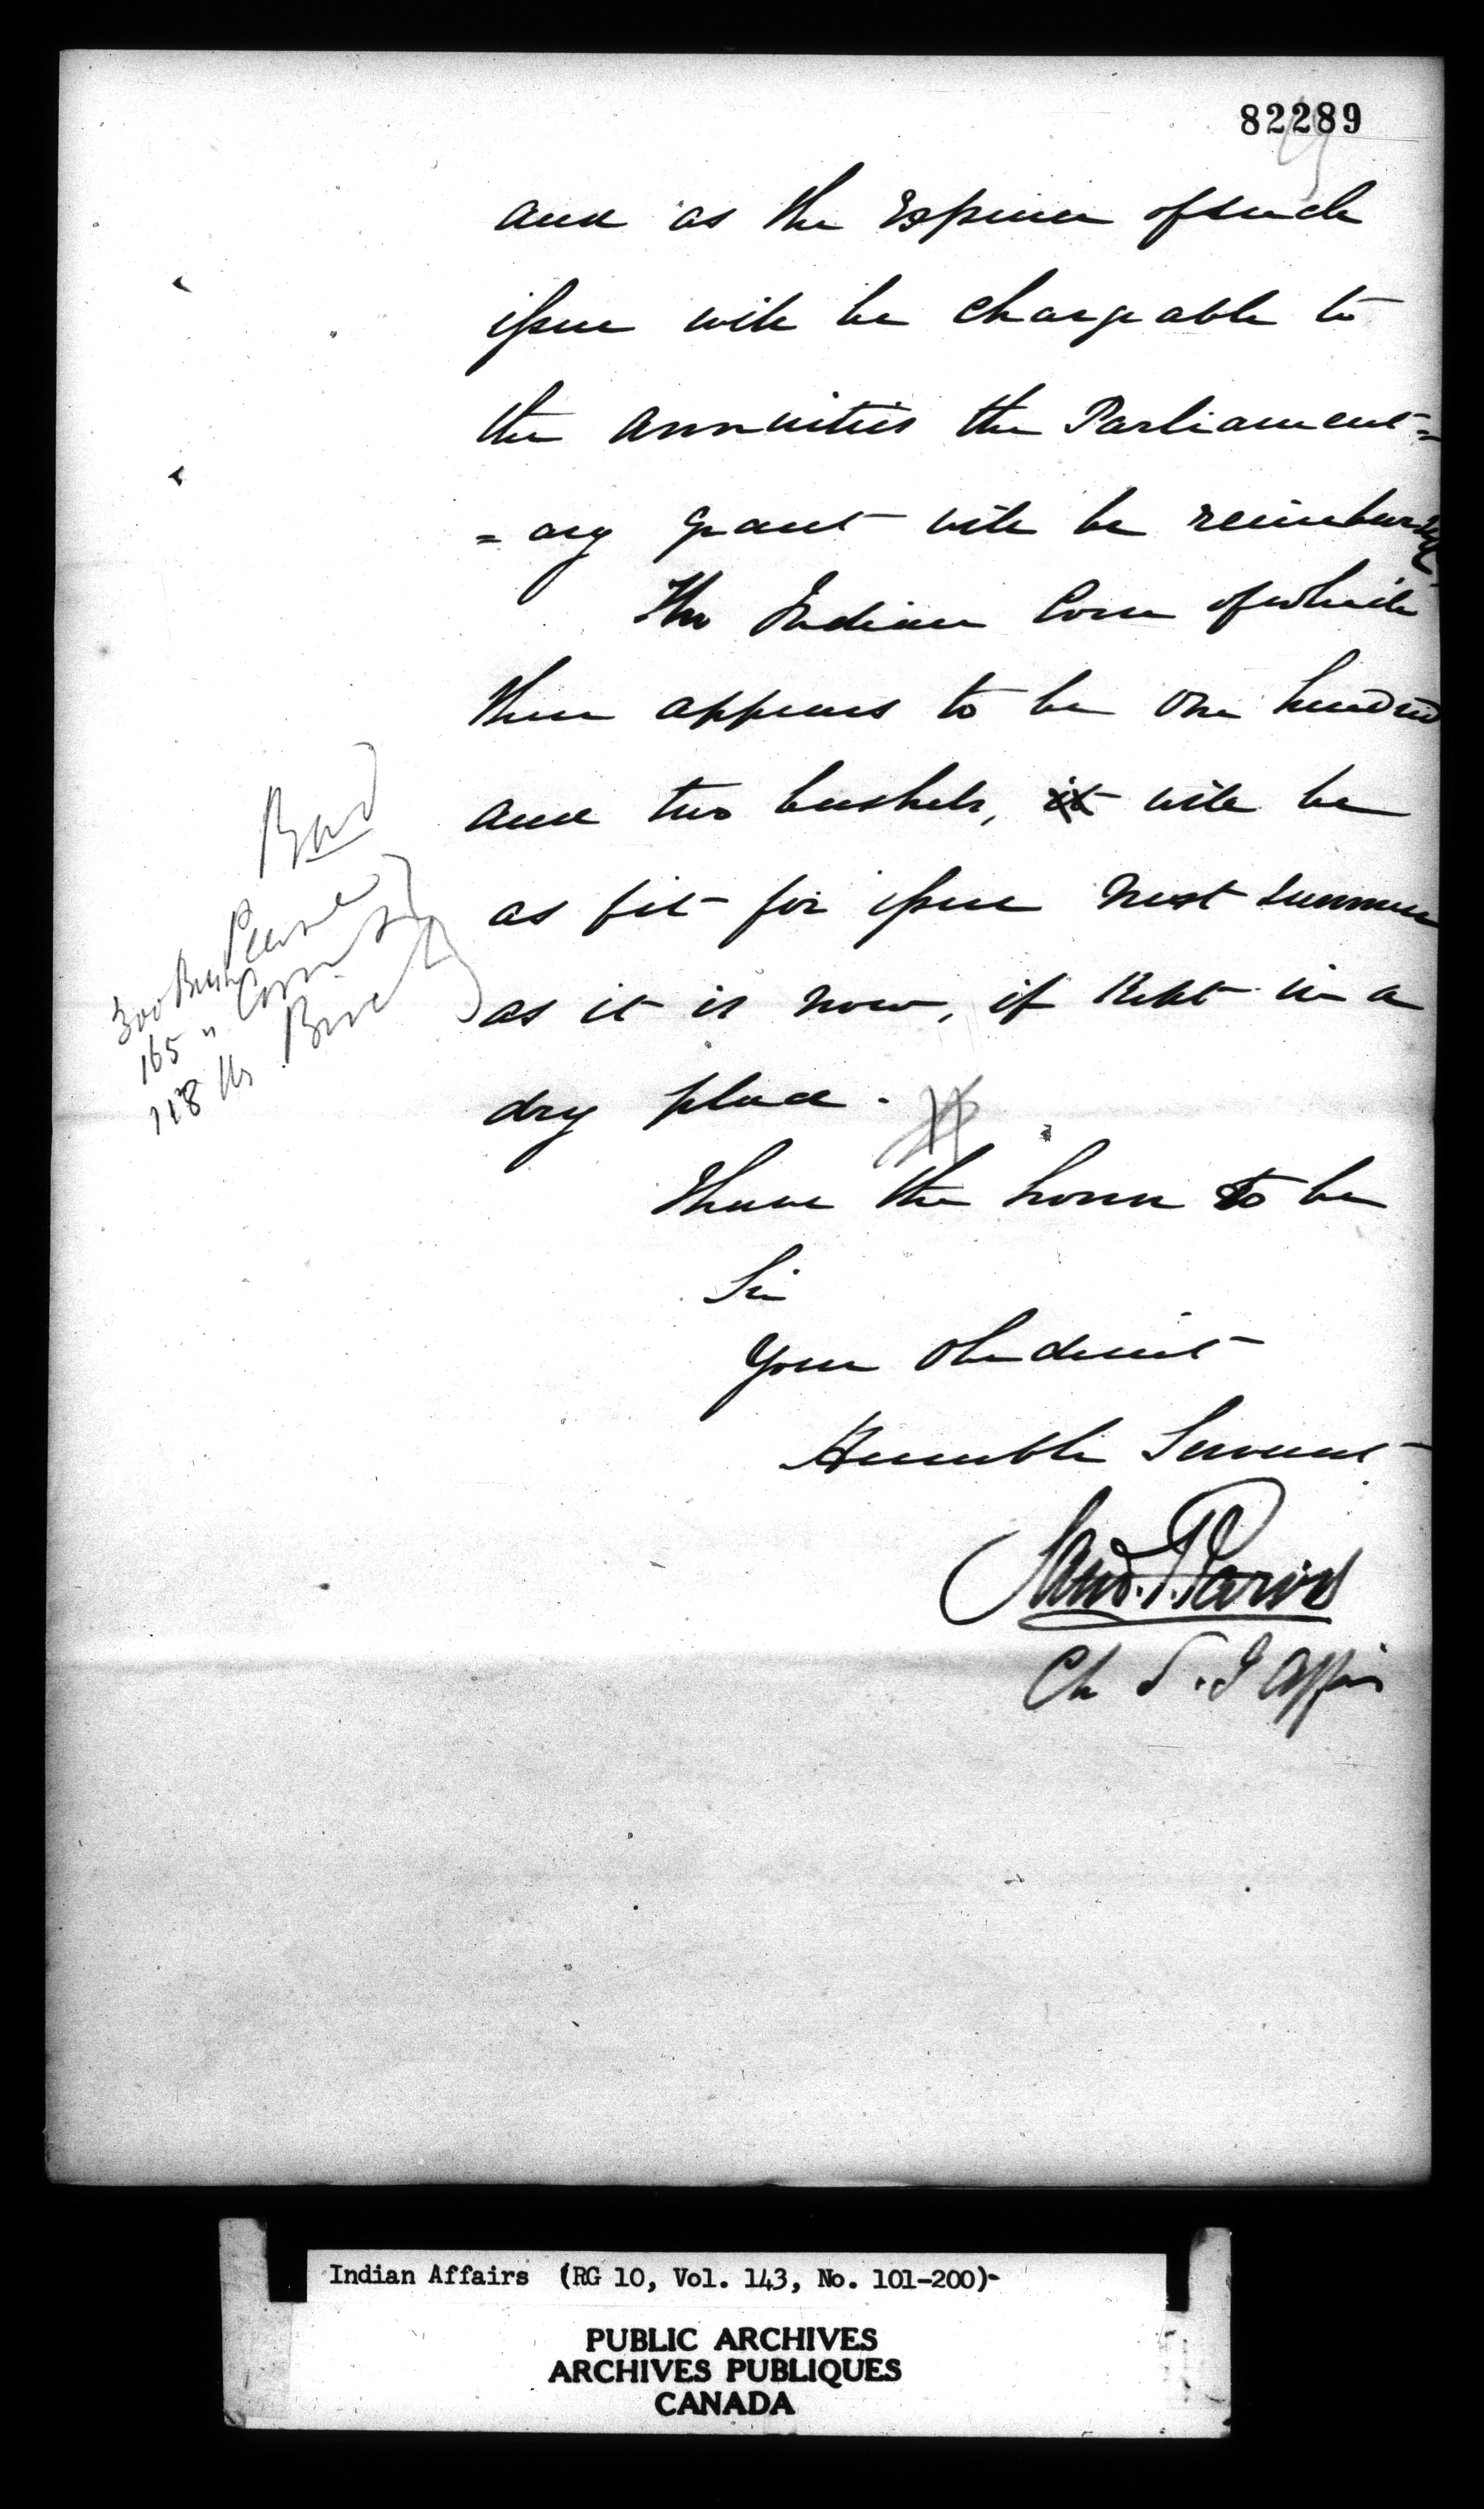 82289
and as the Expense of such
issue will be chargeable to
the annuities the Parliament=
=ary grant will be reimbursed
The Indian Corn of which
there appears to be one hundred
and two bushels, it will be
as fit for issue next summer
as it is now, if kept in a
dry place.
I have the honor to be
Sir
Your obedient
Humble Servant
Saml. P. Jarvis
Ch S. I Affairs
300 Bush
165 " Corn
118 lbs
Indian Affairs (RG 10, Vol. 143, No. 101-200)-
PUBLIC ARCHIVES
ARCHIVES PUBLIQUES
CANADA